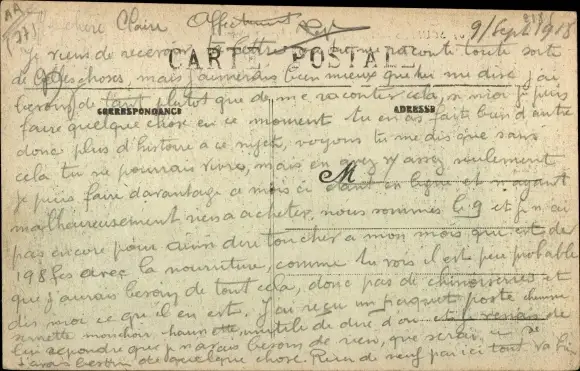 AA
(27)
chère Claire Affectment
9/Sept 1918
Je viens de recevoir ta lettre me raconte toute sorte
CARTE POSTALE
de choses, mais j'aimerais bien mieux que tu me dise j'ai
besoin de tant plutot que de me raconter cela, si moi je puis
CORRESPONDANCE
ADRESSE
faire quelque chose en ce moment tu en as fait bien d'autre
donc plus d'histoire a ce sujet, voyons tu me dis que sans
cela tu ne pourrais vivre, mais en assez seulement
M
je puis faire davantage ce mois ci étant en ligne et n'ayant
malheureusement rien a acheter, nous sommes le 9 et je n'ai
pas encore pour ainsi dire toucher a mon mois qui est de
198 fcs avec la nourriture, comme tu vois il est peu probable
que j'aurais besoin de tout cela, donc pas de chinoiseries et
dis moi ce qu'il en est. J'ai reçu un paquet poste chemise
serviette mouchoir chaussette, inutile de dire d'où et je viens de
lui repondre que je n'avais besoin de rien, que serai se
j'avais besoin de quelque chose. Rien de neuf par ici tout va bien